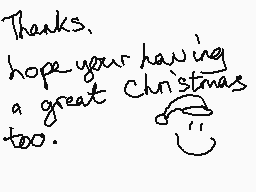 Thanks,
hope your having
a great Christmas
too.